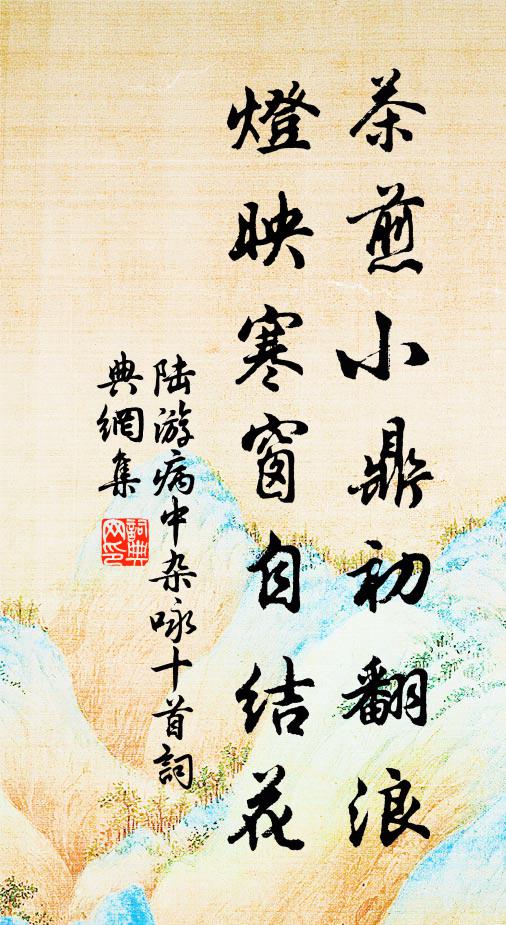 茶煎小鼎初翻浪
燈映寒窗自结花
陆游病中杂咏十首詞
典網集
詞典
网印